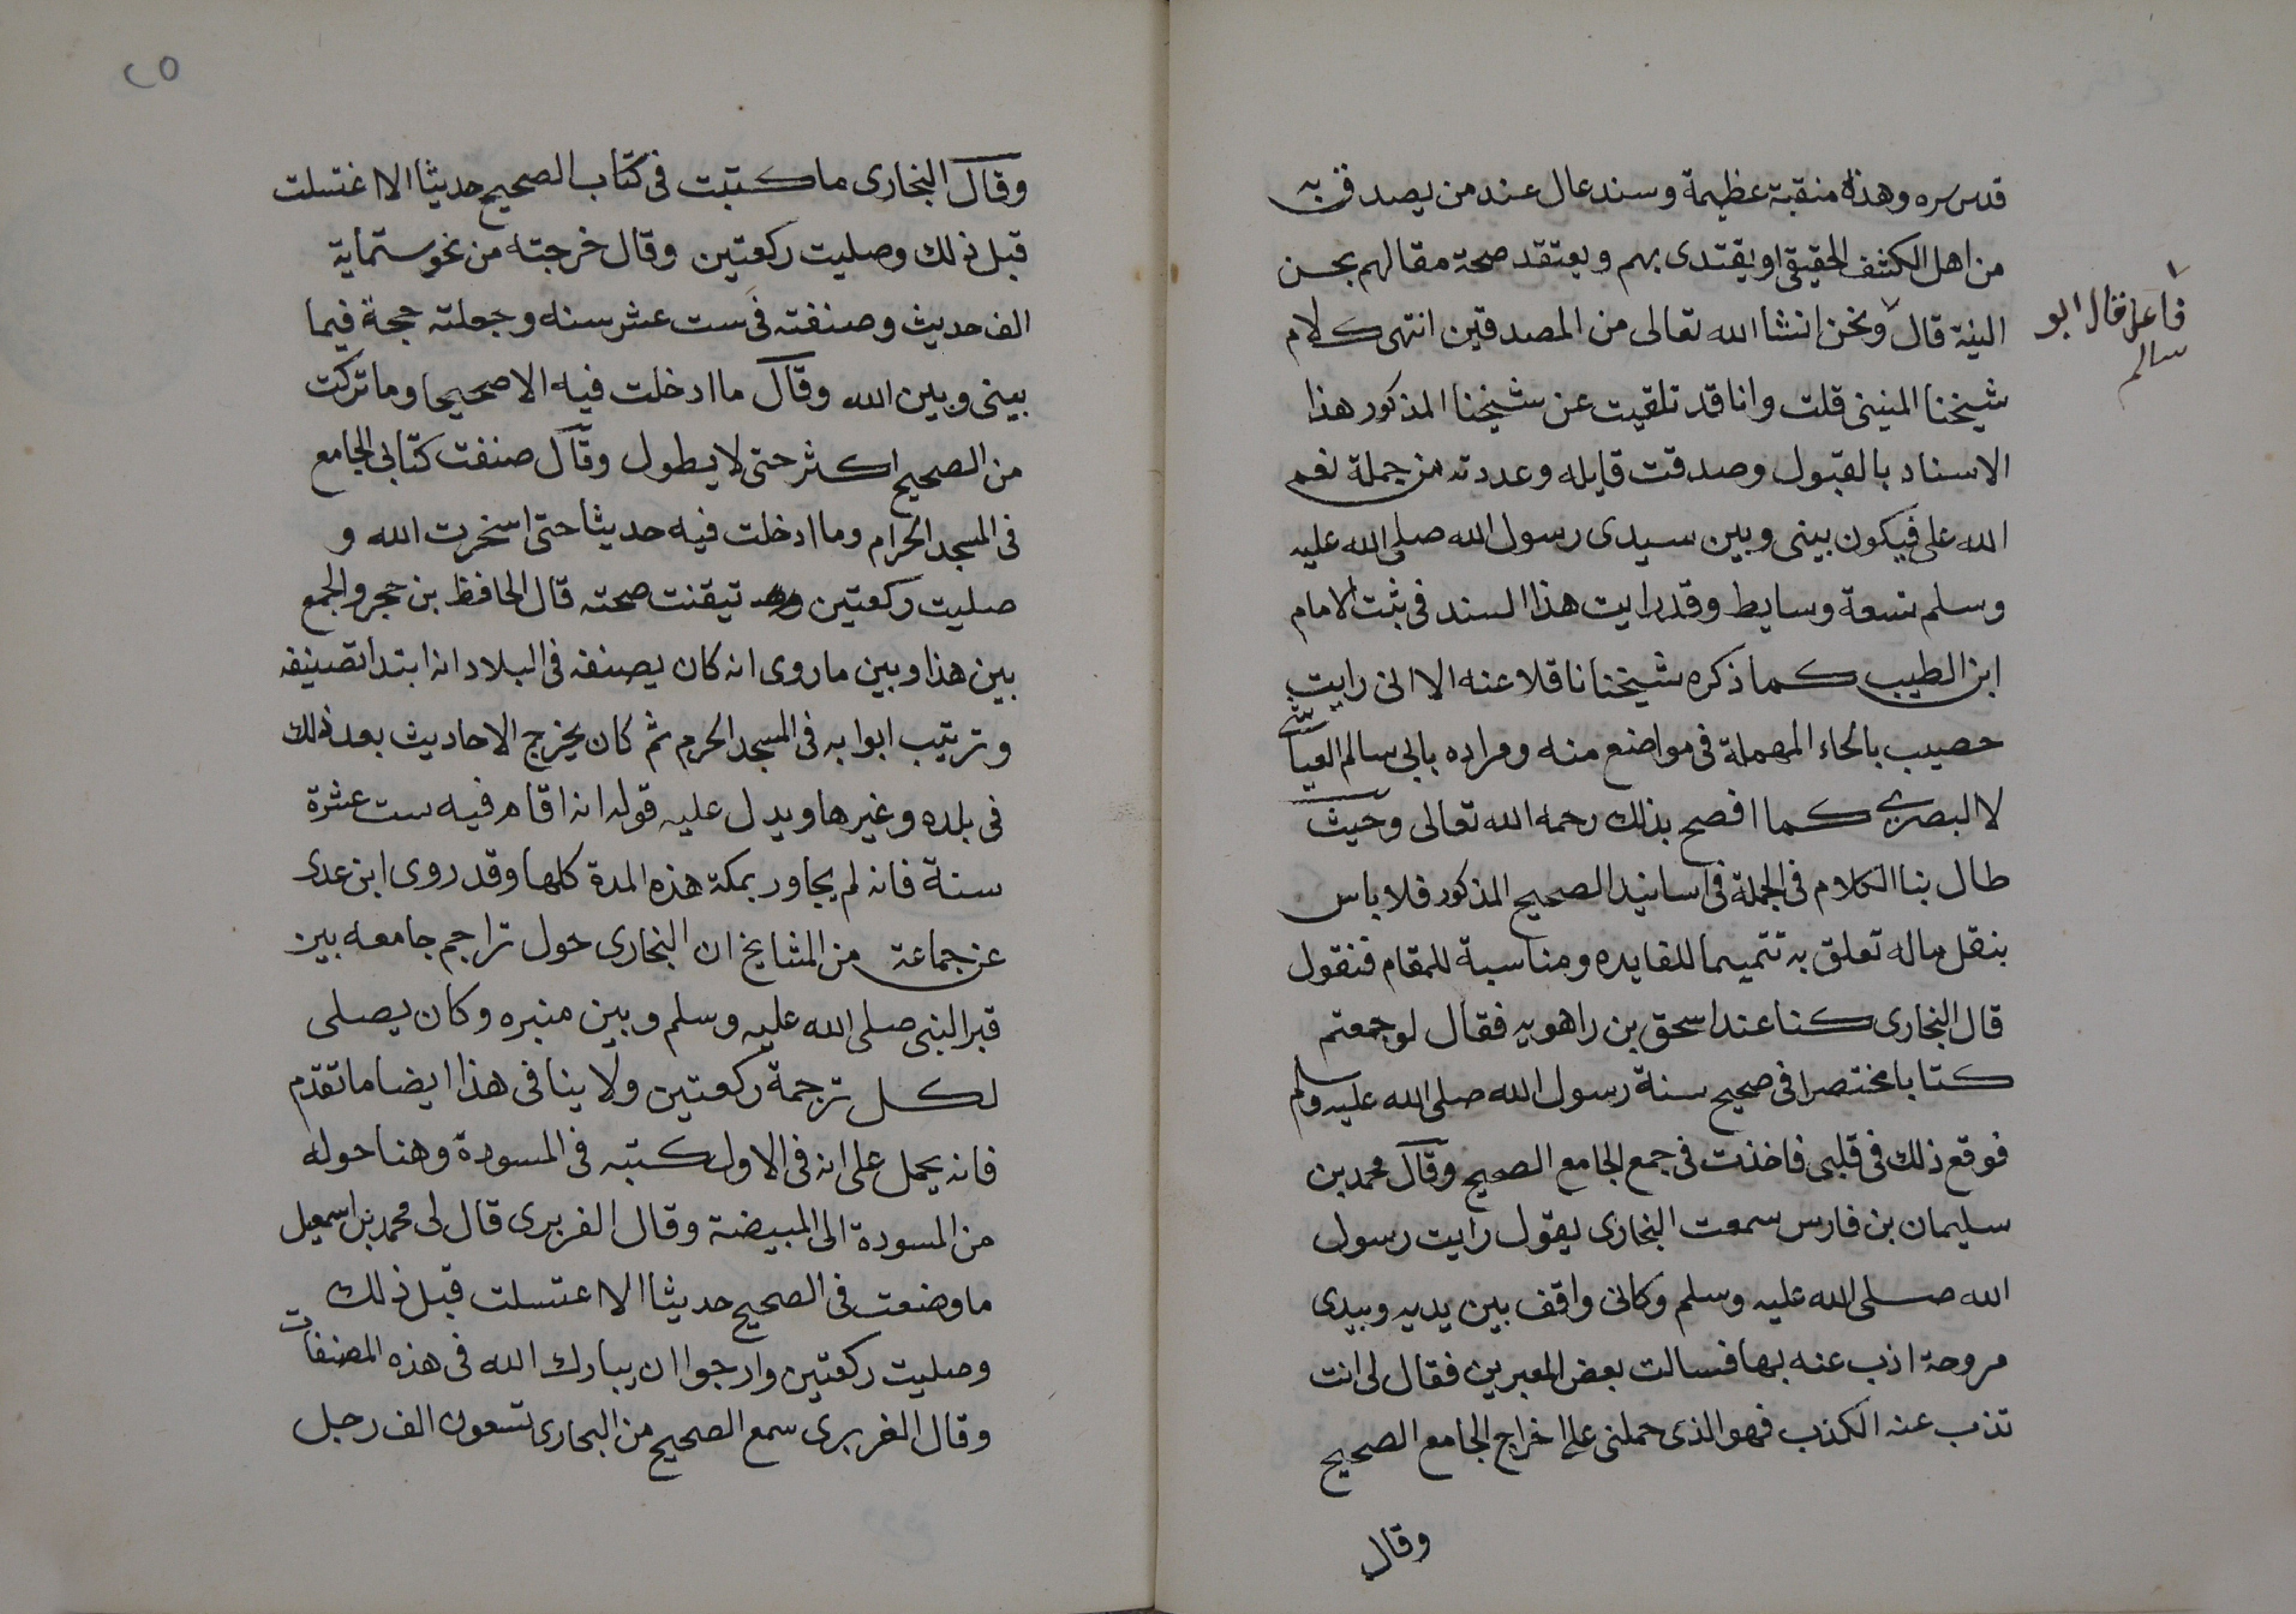 قدس سره وهذه منقبة عظيمة وسند عال عند من يصدق به
من اهل الكشف الحقيقي او يقتدى بهم ويعتقد صحة مقالهم بحسن
النية قال ونحن انشا الله تعالى من المصدقين انتهى كلام
فاعل قال ابو
سالم
شيخنا المنينى قلت وانا قد تلقيت عن شيخنا المذكور هذا
الاسناد بالقبول وصدقت قايله وعددته من جملة نعم
الله على فيكون بينى وبين سيدى رسول الله صلى الله عليه
وسلم تسعة وسايط وقد رايت هذا السند فى ثبت الامام
ابن الطيب كما ذكره شيخنا ناقلا عنه الا انى رايت
حصيب بالحاء المهملة فى مواضع منه ومراده بابى سالم العياشى
لا البصرى كما افصح بذلك رحمه الله تعالى وحيث
طال بنا الكلام فى الجملة فى اسانيد الصحيح المذكور فلا باس
بنقل ماله تعلق به تتميما للفايده ومناسبة للمقام فنقول
قال البخارى كنا عند اسحق بن راهويه فقال لو جمعتم
كتابا مختصرا فى صحيح سنة رسول الله صلى الله عليه وسلم
فوقع ذلك فى قلبى فاخذت فى جمع الجامع الصحيح وقال محمد بن
سليمان بن فارس سمعت البخارى يقول رايت رسول
الله صلى الله عليه وسلم وكانى واقف بين يديه وبيدى
مروحة اذب عنه بها فسالت بعض المعبرين فقال لى انت
تذب عنه الكذب فهو الذى حملنى على اخراج الجامع الصحيح
وقال
٢٥
وقال البخارى ما كتبت فى كتاب الصحيح حديثا الا اغتسلت
قبل ذلك وصليت ركعتين وقال خرجته من نحو ستماية
الف حديث وصنفته فى ست عشر سنه وجعلته حجة فيما
بينى وبين الله وقال ما ادخلت فيه الا صحيحا وما تركت
من الصحيح اكثر حتى لا يطول وقال صنفت كتابى الجامع
فى المسجد الحرام وما ادخلت فيه حديثا حتى استخرت الله و
صليت ركعتين تيقنت صحته قال الحافظ بن حجر والجمع
بين هذا وبين ما روى انه كان يصنفه فى البلاد انه ابتدا تصنيفه
وترتيب ابوابه فى المسجد الحرم ثم كان يخرج الاحاديث بعد ذلك
فى بلده وغيرها ويدل عليه قوله انه اقام فيه ست عشرة
سنة فانه لم يجاور بمكة هذه المدة كلها وقد روى ابن عدى
عن جماعة من المشايخ ان البخارى حول تراجم جامعه بين
قبر النبى صلى الله عليه وسلم وبين منبره وكان يصلى
لكل ترجمة ركعتين ولا ينافى هذا ايضا ما تقدم
فانه يحمل على انه فى الاول كتبه فى المسودة وهنا حوله
من المسودة الى المبيضة وقال الفربرى قال لى محمد بن اسمعيل
ما وضعت فى الصحيح حديثا الا اغتسلت قبل ذلك
وصليت ركعتين وارجوا ان يبارك الله فى هذه المصنفات
وقال الفربرى سمع الصحيح من البخارى تسعون الف رجل